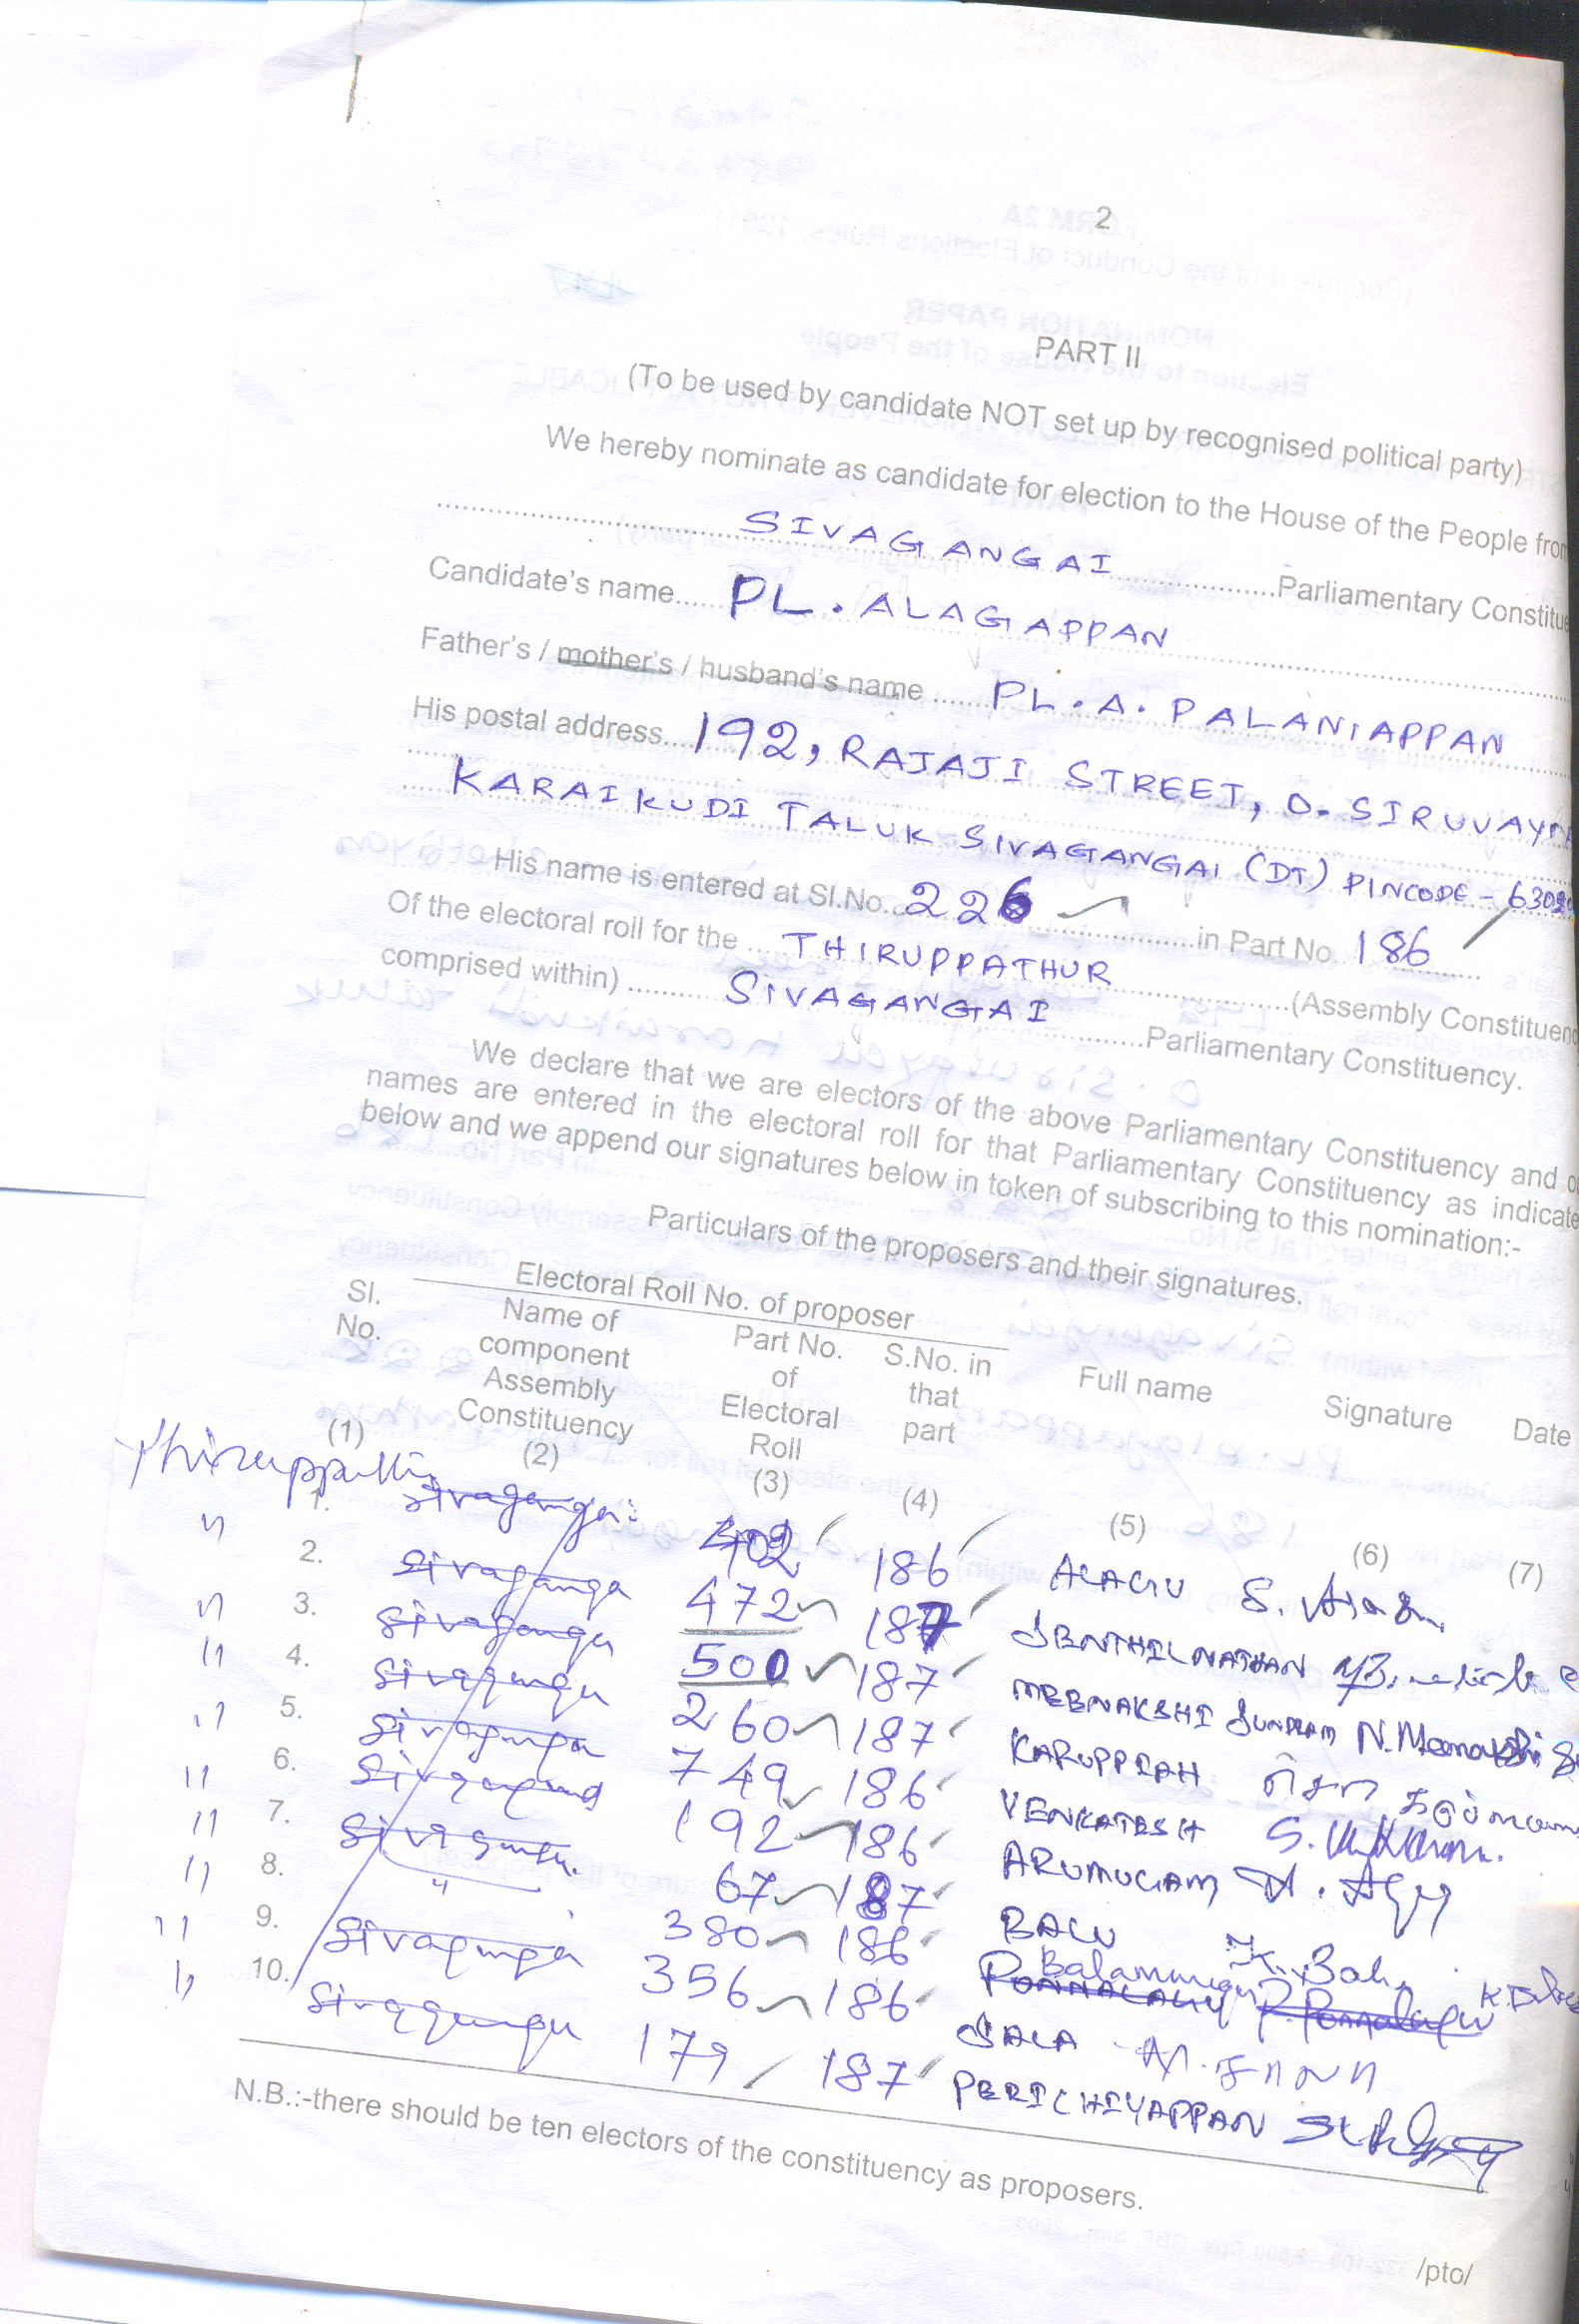 2
PART II
(To be used by candidate NOT set up by recognised political party)
We hereby nominate as candidate for election to the House of the People from
SIVAGANGAI Parliamentary Constitue
Candidate's name PL. ALAGAPPAN
Father's / mother's / husband's name PL. A. PALANIAPPAN
His postal address 192, RAJAJI STREET, O. SIRUVAY
KARAIKUDI TALUK SIVAGANGAI (DT) PINCODE - 630
His name is entered at Sl.No. 226 in Part No. 186
Of the electoral roll for the THIRUPPATHUR (Assembly Constituenc
comprised within) SIVAGANGAI Parliamentary Constituency.
We declare that we are electors of the above Parliamentary Constituency and o
names are entered in the electoral roll for that Parliamentary Constituency as indicate
below and we append our signatures below in token of subscribing to this nomination:-
Particulars of the proposers and their signatures.
Electoral Roll No. of proposer
Sl. No. Name of component Assembly Constituency Part No. of Electoral Roll S.No. in that part Full name Signature Date
(1) (2) (3) (4) (5) (6) (7)
1. 402 186 ALAGU S.
" 2. Sivaganga 472 187 SENTHILNATHAN
" 3. Sivaganga 500 187 MEENAKSHI SUNDRAM N. Meenakshi
" 4. Sivaganga 260 187 KARUPPIAH
" 5. Sivaganga 749 186 VENKATESH
" 6. Sivaganga 192 186 ARUMUGAM
" 7. Sivaganga 67 187 BALU K. Balu
" 8. " 380 186 Balamurugan
" 9. Sivaganga 356 186 JALA
" 10. Sivaganga 179 187 PERICHIYAPPAN
N.B.:-there should be ten electors of the constituency as proposers.
/pto/